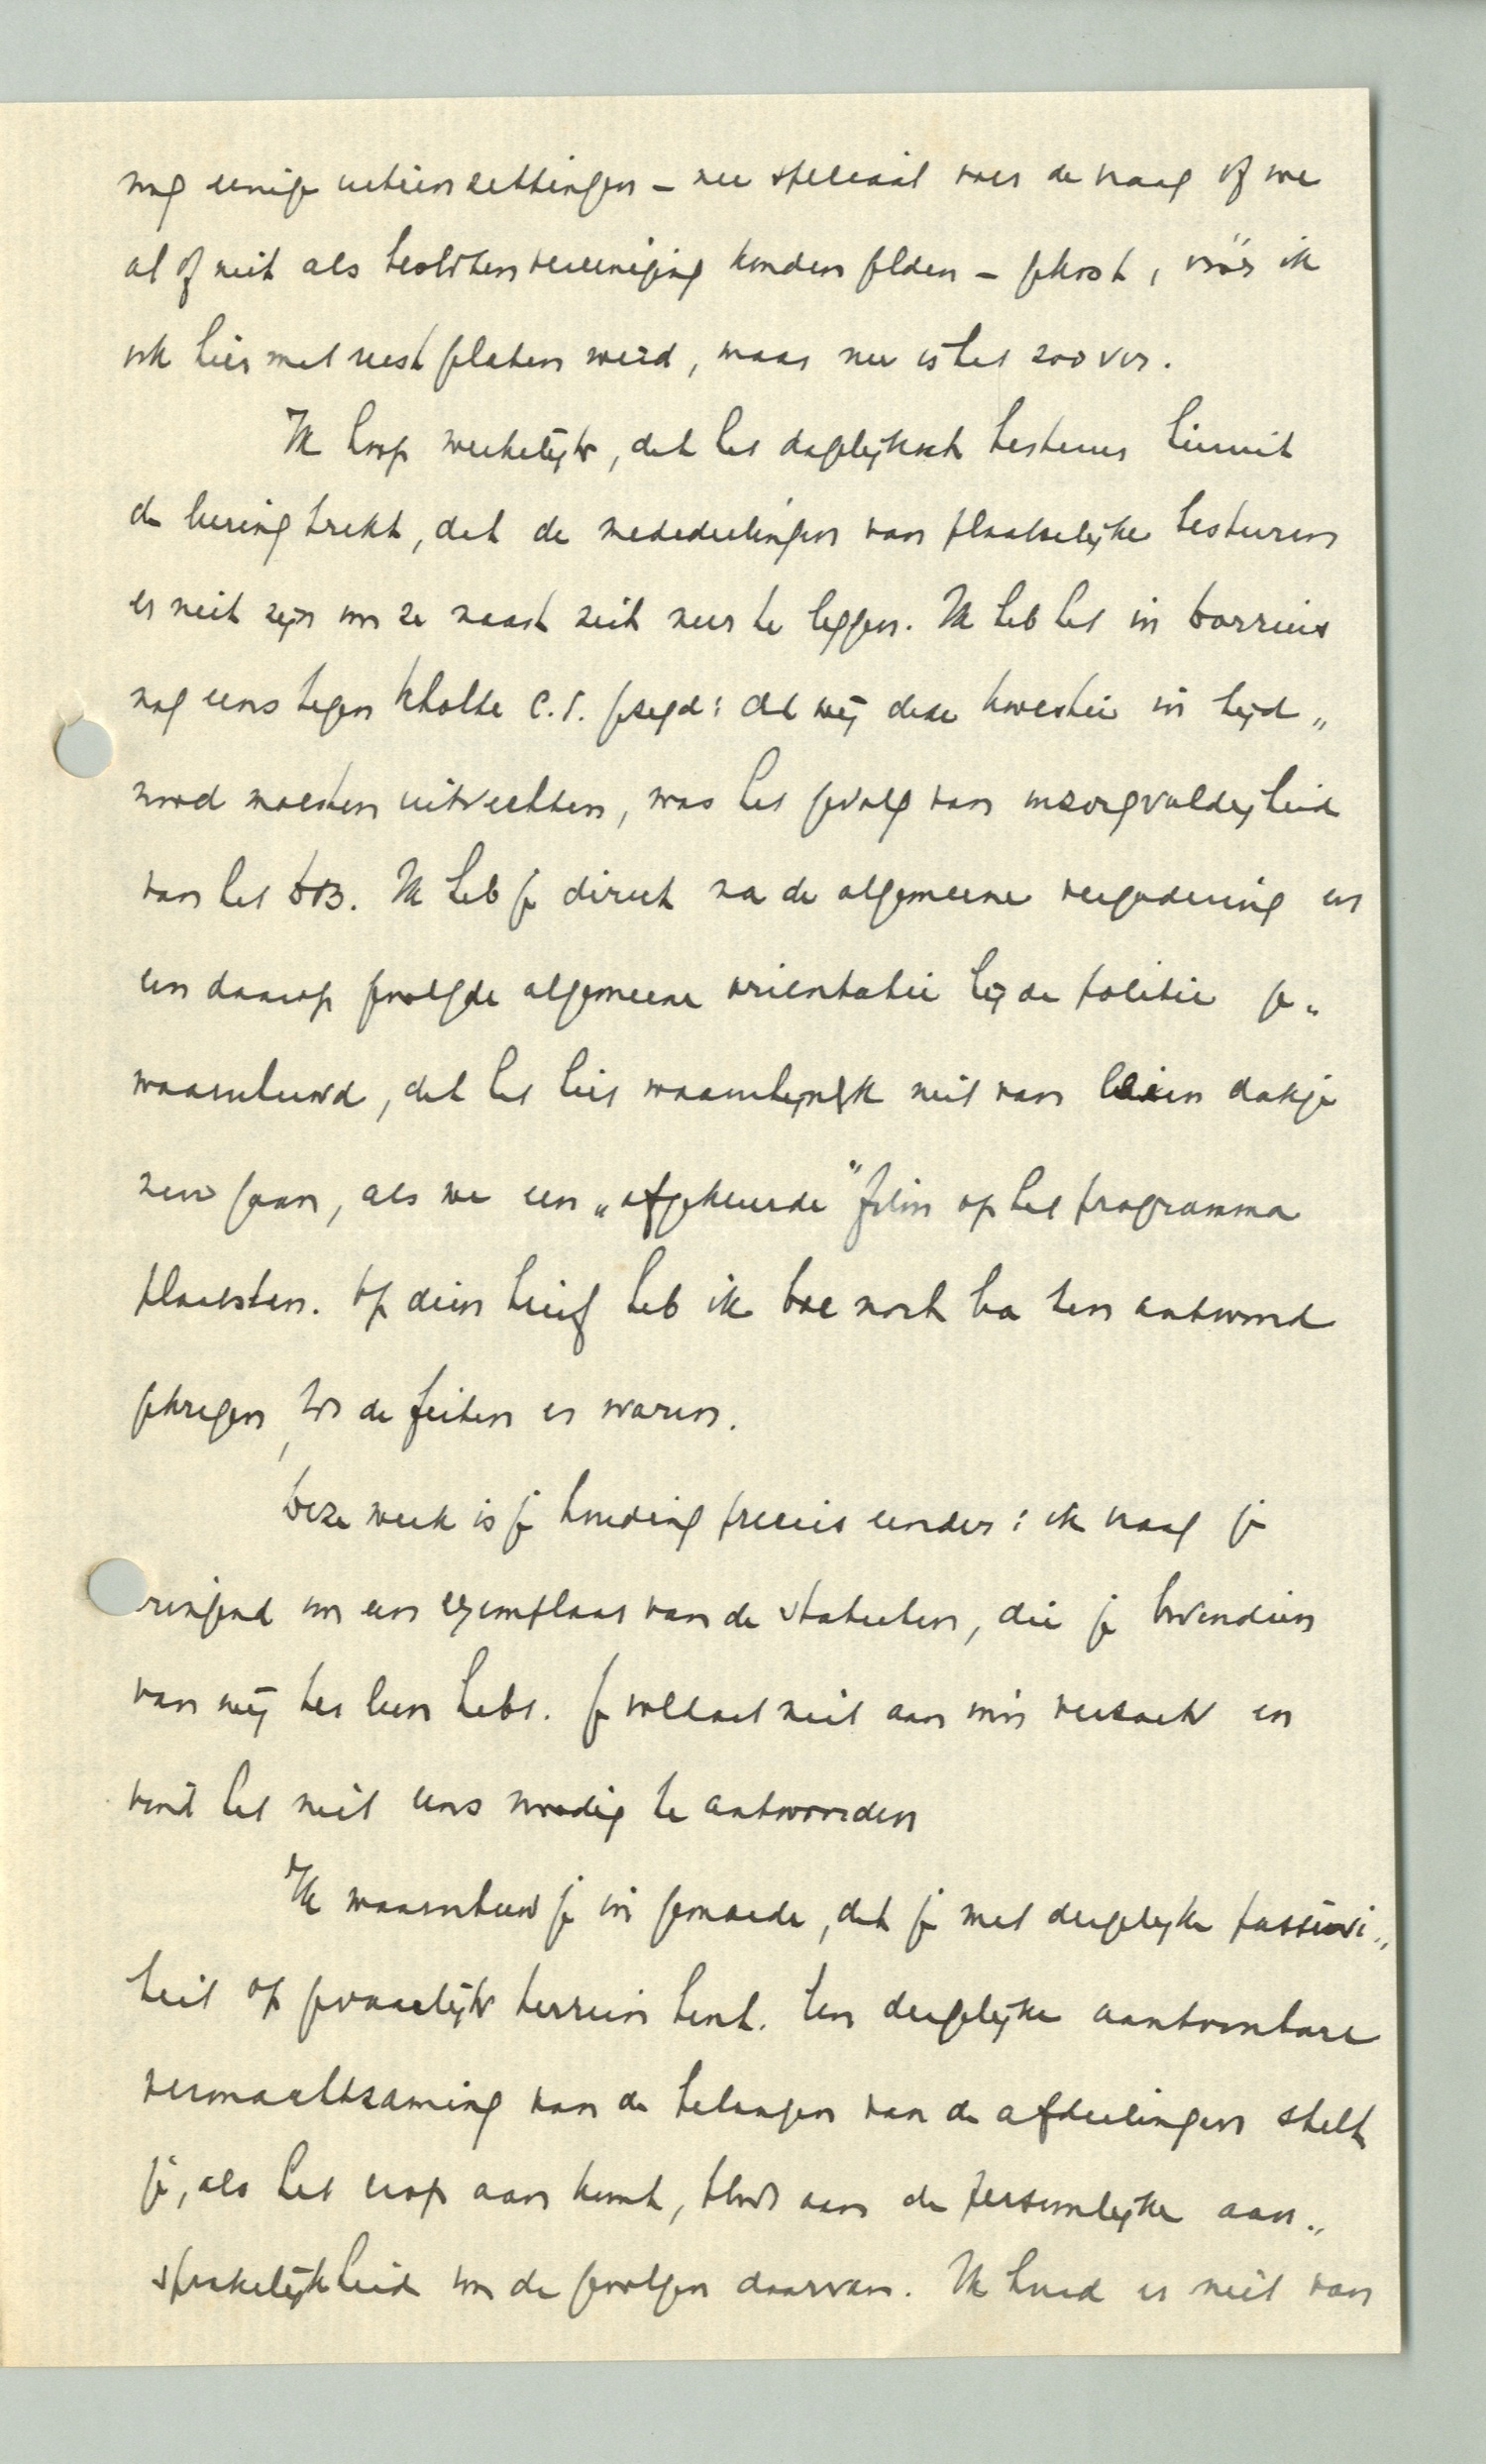 nog eenige uiteenzettingen – nu speciaal over de vraag of we
al of niet als besloten vereeniging konden gelden – gekost, vóór ik
ook hier met rust gelaten werd, maar nu is het zoo ver.
Ik hoop werkelijk, dat het dagelijksch bestuur hieruit
de leering trekt, dat de mededeelingen van plaatselijke besturen
er niet zijn om ze naast zich neer te leggen. Ik heb het in Parijs
nog eens tegen Scholte c.s. gezegd: dat wij deze kwestie in tijd„
nood moesten uitvechten, was het gevolg van onzorgvuldigheid
van het DB. Ik heb je direct na de algemeene vergadering en
een daarop gevolgde algemeene orientatie bij de politie ge„
waarschuwd, dat het hier waarschijnlijk niet van leien dakje
zou gaan, als we een „afgekeurde" film op het programma
plaatsten. Op dien brief heb ik boe noch ba ten antwoord
gekregen, tot de feiten er waren.
Deze week is je houding precies eender: ik vraag je
dringend om een exemplaar van de statuten, die je bovendien
van mij ter leen hebt. Je voldoet niet aan mijn verzoek en
vindt het niet eens noodig te antwoorden
Ik waarschuw je in gemoede, dat je met dergelijke passivi„
teit op gevaarlijk terrein bent. Een dergelijke aantoonbare
verwaarloozing van de belangen van de afdeelingen stelt
je, als het erop aan komt, bloot aan de persoonlijke aan„
sprakelijkheid voor de gevolgen daarvan. Ik houd er niet van